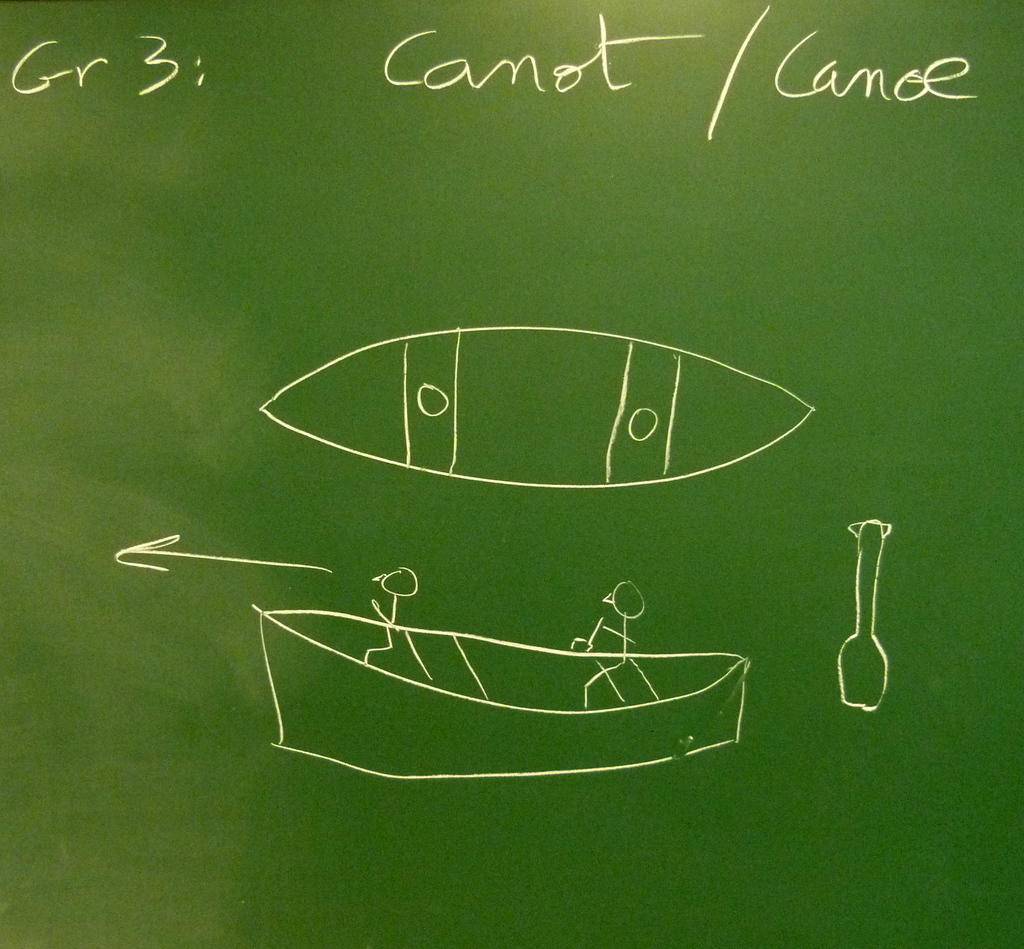 Gr 3: Canot / Canoe